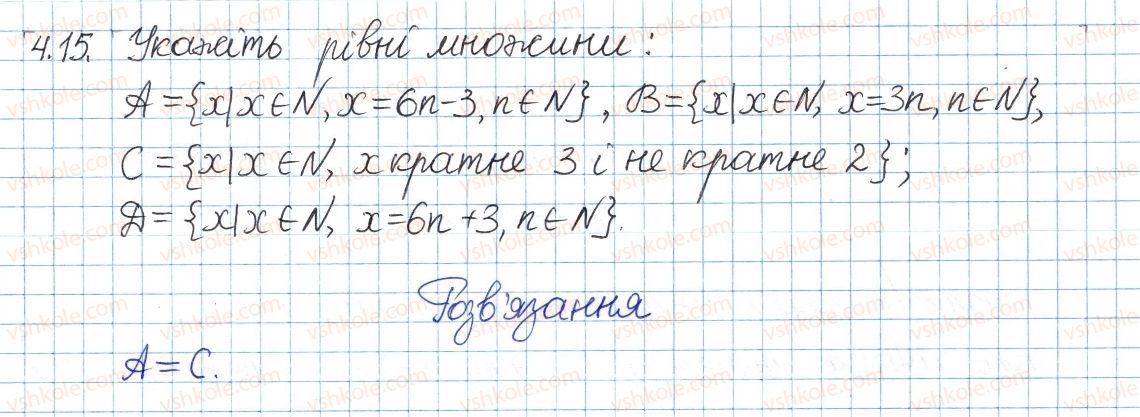 4.15. Укажіть рівні множини:
A = {x|x∈N, x=6n-3, n∈N}, B={x|x∈N, x=3n, n∈N},
C = {x|x∈N, x кратне 3 і не кратне 2};
D = {x|x∈N, x=6n+3, n∈N}.
Розв'язання
A = C.